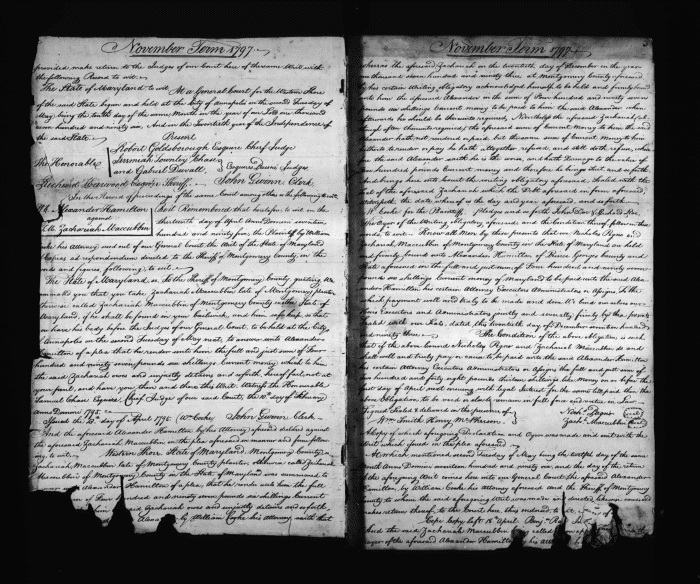 November Term 1797
provided make return to the Judges of our Court here of the same Writ with
the following Record to wit.
The State of Maryland to wit At a General Court for the Western Shore
of the said State begun and held at the City of Annapolis on the second Tuesday of
May being the tenth day of the same Month in the year of our Lord one thousand
seven hundred and ninety six And in the Twentieth year of the Independence of
the said State.
Present
Robert Goldsborough Esquire Chief Judge
The Honorable Jeremiah Townley Chase
and Gabriel Duvall Esquires Judges
Richard Harwood Esquire Sheriff. John Gwinn Clerk
In the Record of proceedings of the same Court among other is the following to wit
Alexander Hamilton Be it Remembered that heretofore to wit on the
against thirteenth day of April Anno Domini seventeen
Zachariah Maccubbin hundred and ninety five the Plaintiff by William
Cooke his Attorney sued out of our General Court the Writ of the State of Maryland
Capias ad respondendum directed to the Sheriff of Montgomery County in the
words and figures following to wit
The State of Maryland to the Sheriff of Montgomery County greeting We
command you that you take Zachariah Maccubbin late of Montgomery County planter
otherwise called Zachariah Maccubbin of Montgomery County in the State of
Maryland, if he shall be found in your bailiwick, and him safe keep so that
you have his body before the Judges of our General Court, to be held at the City of
Annapolis on the second Tuesday of May next, to answer unto Alexander
Hamilton of a plea that he render unto him the full and just sum of four
hundred and ninety seven pounds six shillings current money which to him
the said Zachariah owes and unjustly detains and so forth, hereof fail not at
your peril, and have you then and there this Writ Witness the Honorable
Samuel Chase Esquire, Chief Judge of our said Court, the 10th day of February
Anno Domini 1795
Issued the 13th day of April 1795 (Wm Cooke) John Gwinn Clerk
And the aforesaid Alexander Hamilton by his Attorney filed declared against
the aforesaid Zachariah Maccubbin in the plea aforesaid in manner and form follow-
ing to wit. Western Shore State of Maryland, Montgomery County
Zachariah Maccubbin late of Montgomery County planter, otherwise called Zachariah
Maccubbin of Montgomery County in the State of Maryland was summoned to
Alexander Hamilton of a plea, that he render unto him the full
sum of Four hundred and ninety seven pounds six shillings Current
said Zachariah owes and unjustly detains and so forth
Alexander by William Cooke his Attorney saith that
November Term 1797
whereas the aforesaid Zachariah on the twentieth day of December in the year
one thousand seven hundred and ninety three at Montgomery County aforesaid
by his certain Writing obligatory acknowledged himself to be held and firmly bound
unto him the aforesaid Alexander in the aforesaid sum of Four hundred and ninety seven
pounds six shillings Current money to be paid to him the said Alexander when
afterwards he should be thereunto required. Nevertheless the aforesaid Zachariah (al-
though often thereunto required) the aforesaid sum of Current money to him the said
Alexander hath not rendered or paid but the same sum of Current money to him
hitherto to render or pay he hath altogether refused and still doth refuse, where
fore the said Alexander saith he is the worse, and hath Damage to the value of
four hundred pounds Current money and therefore he brings Suit and so forth
and brings here into Court the writing obligatory aforesaid, sealed with the
Seal of the aforesaid Zachariah which the Debt aforesaid in form aforesaid
testifieth, the date whereof is the day and year aforesaid, and so forth
W Cooke for the Plaintiff. Pledges and so forth John Doe & Richard Roe
The tenor of the Writing Obligatory aforesaid and the condition thereof followeth
to wit. Know all Men by these presents that we Nicholas Pyper and
Zachariah Maccubbin of Montgomery County in the State of Maryland are held
and firmly bound unto Alexander Hamilton of Prince Georges County and
State aforesaid in the full and just sum of Four hundred and ninety seven
pounds six shillings Current money of Maryland to be paid unto the said Alex-
ander Hamilton his certain Attorney Executors Administrators or Assigns to the
which payment well and truly to be made and done We bind ourselves our
Heirs Executors and Administrators jointly and severally firmly by these presents
Sealed with our Seals, dated, this twentieth day of December seventeen hundred
and ninety three. The Condition of the above obligation is such
that if the above bound Nicholas Pyper and Zachariah Maccubbin do and
shall well and truly pay or cause to be paid unto the said Alexander Hamilton
his certain Attorney Executors Administrators or Assigns the full and just sum of
two hundred and forty eight pounds thirteen shillings like Money on or before the
first day of April next ensuing with legal Interest for the same till paid then the
above Obligation to be void or else to remain in full force and virtue in Law
Signed Sealed & delivered in the presence of Nichs Pyper (seal)
Wm Smith Henry McPherson Zachr Maccubbin (seal)
At which mentioned second Tuesday of May being the twelfth day of the same
month Anno Domini seventeen hundred and ninety five, and the day of the return of
the aforegoing Writ comes here into our General Court the aforesaid Alexander
Hamilton by William his Attorney aforesaid and the Sheriff of Montgomery
County to whom the said aforegoing Writ was made
return thereof to the Court here
Copy left 18 April
And the said Zachariah Maccubbin
of the aforesaid Alexander Hamilton by his